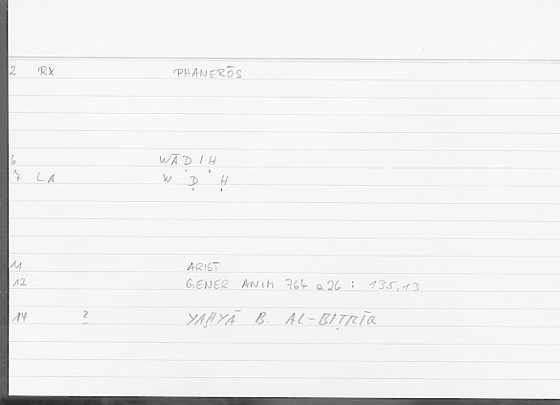 2 RX PHANERŌS
6 WĀḌIḤ
7 LA W Ḍ Ḥ
11 ARIST
12 GENER ANIM 764 a 26 : 135,13
14 2 YAḤYĀ B. AL-BIṬRĪQ